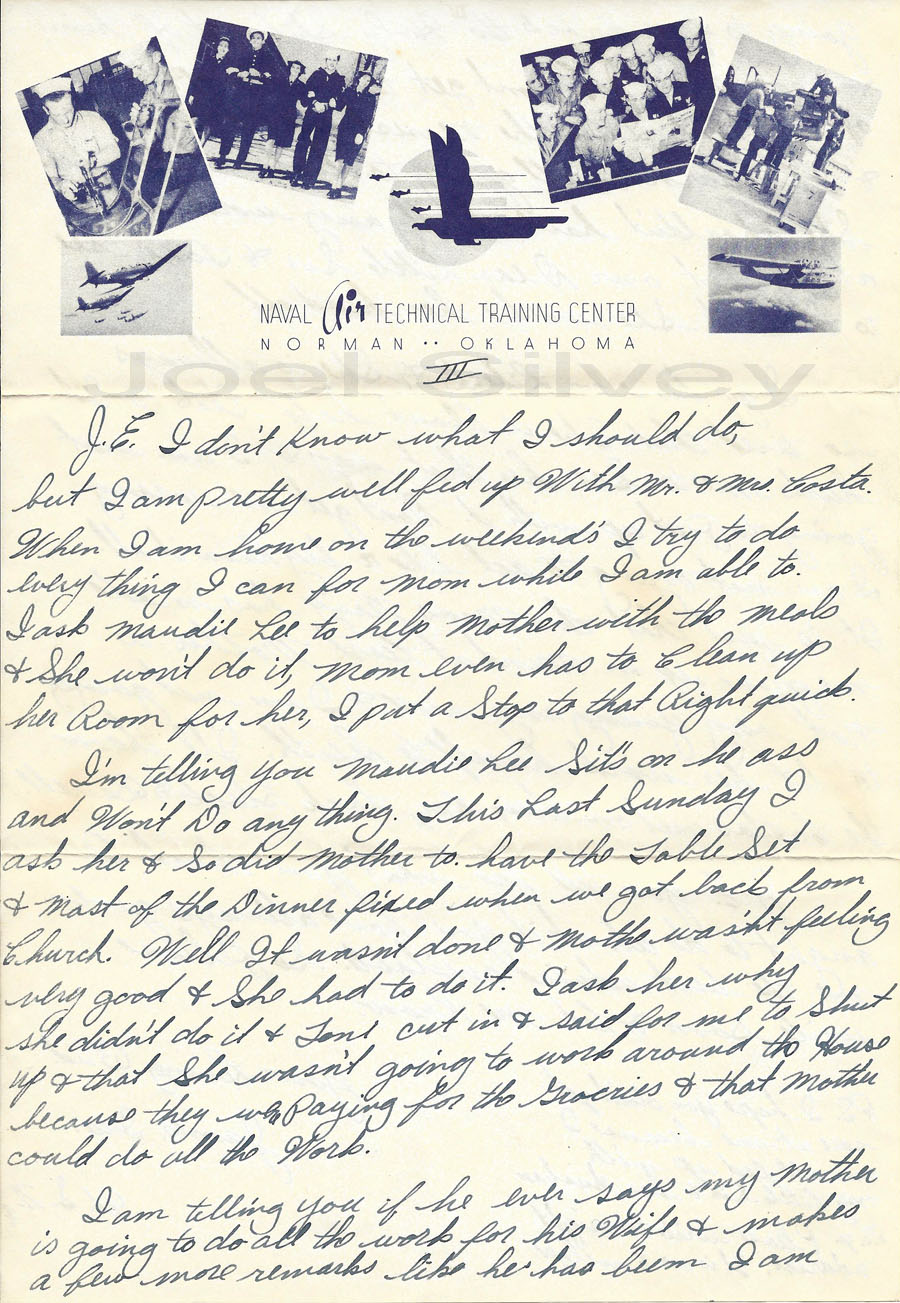 NAVAL Air TECHNICAL TRAINING CENTER
NORMAN •• OKLAHOMA
Joel Silvey
III
J.E. I don't Know what I should do,
but I am pretty well fed up With Mr. & Mrs. Costa.
When I am home on the weekend's I try to do
every thing I can for mom while I am able to.
I ask Maudie Lee to help Mother with the meals
& She won't do it, Mom even has to Clean up
her Room for her, I put a Stop to that Right quick.
I'm telling you Maudie Lee Sit's on he ass
and Won't Do any thing. This Last Sunday I
ask her & So did Mother to have the Table Set
& Most of the Dinner fixed when we got back from
Church. Well It wasn't done & Mothe wasn't feeling
very good & She had to do it. I ask her why
she didn't do it & Toni cut in & said for me to Shut
up & that She wasn't going to work around the House
because they wer Paying for the Groceries & that Mother
could do all the Work.
I am telling you if he ever says my Mother
is going to do all the work for his Wife & makes
a few more remarks like he has beem I am